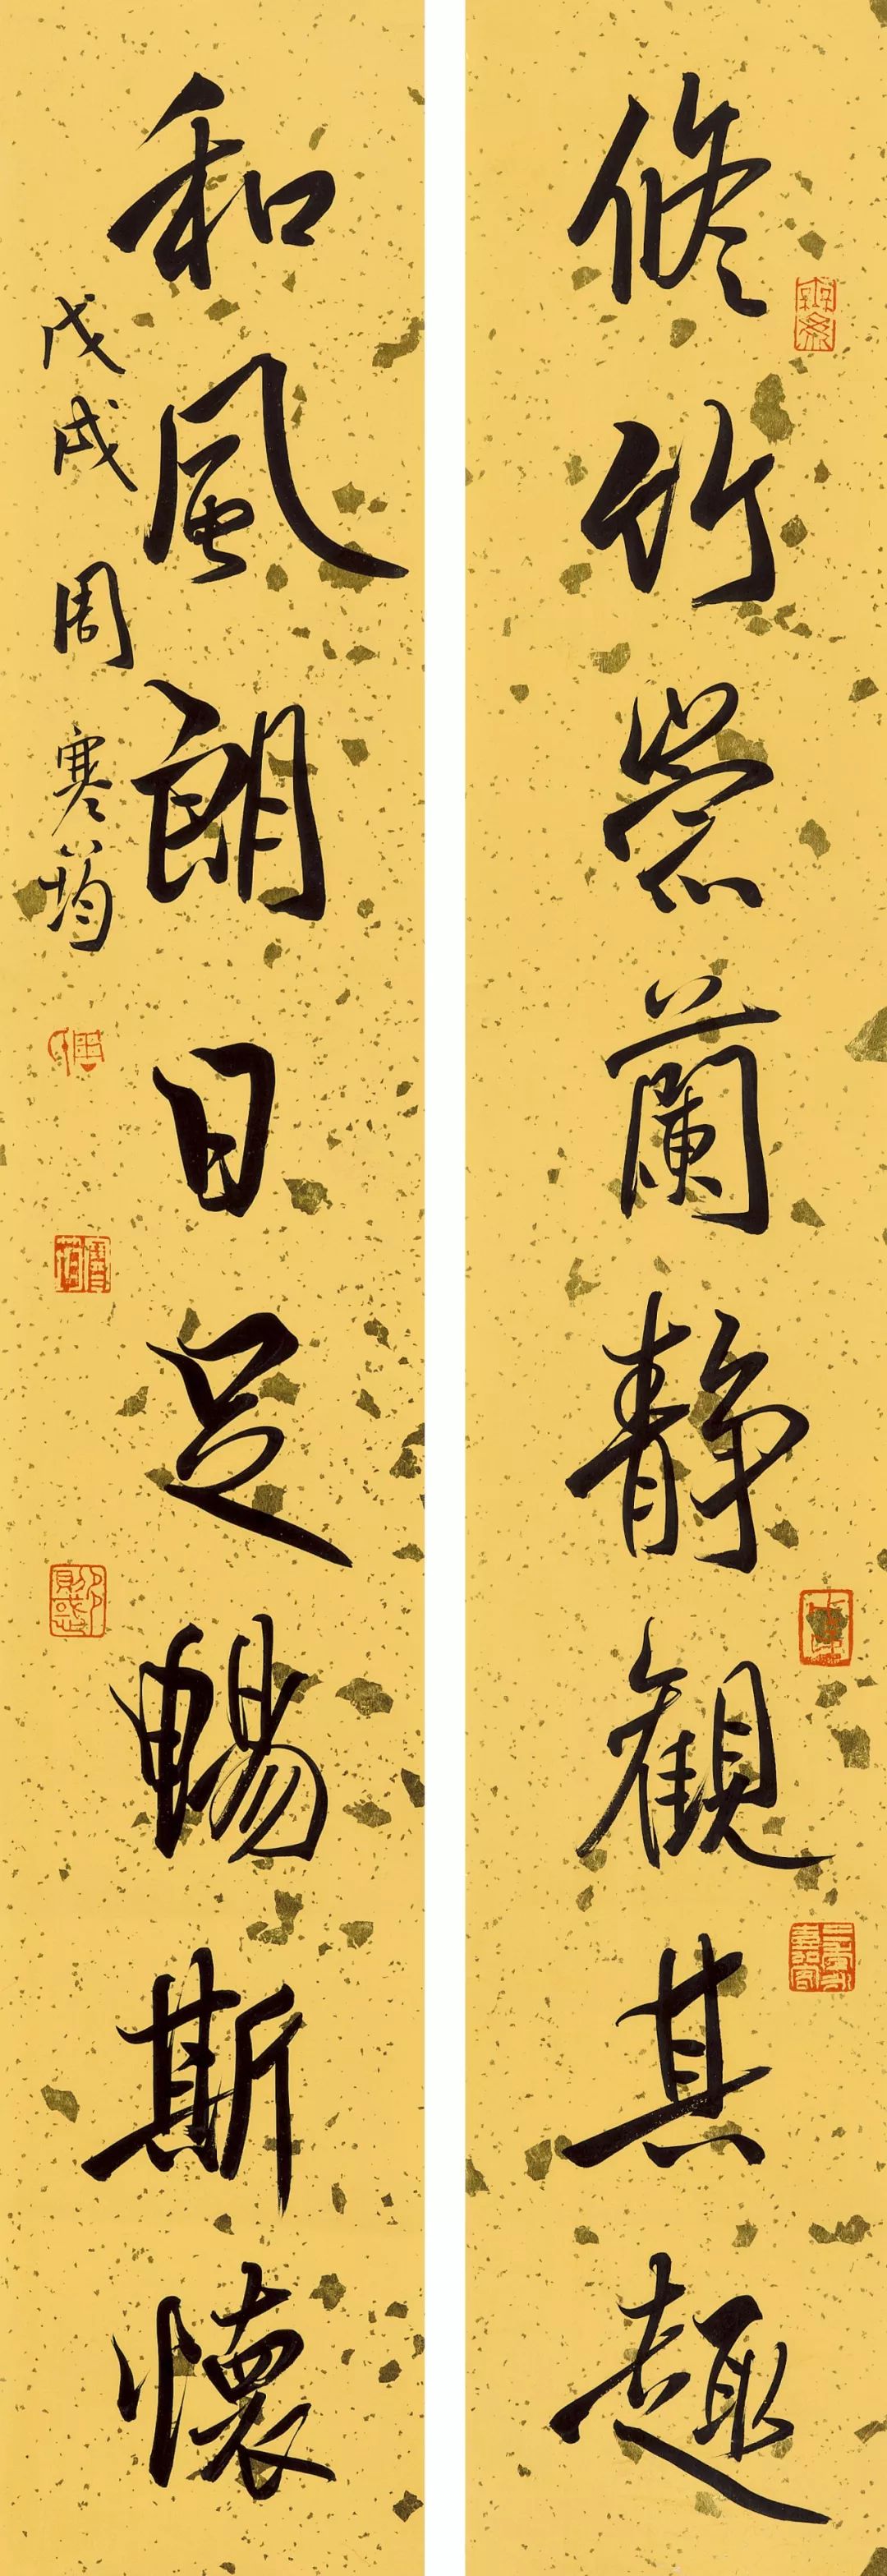 修竹崇蘭静觀其趣
和風朗日足暢斯懷
戊戌 周寒筠